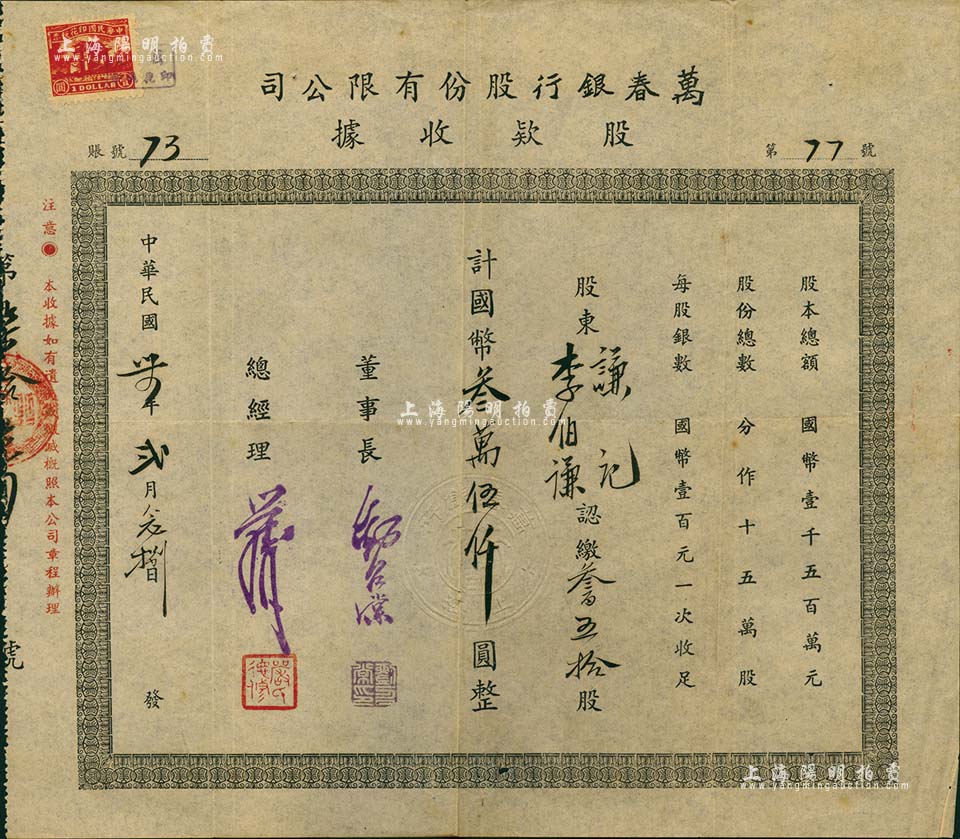 中華民國印花稅票
圓 1 DOLLAR 壹
萬春銀行股份有限公司
股款收據
第 77 號
賬號 73
股本總額 國幣壹千五百萬元
股份總數 分作十五萬股
每股銀數 國幣壹百元一次收足
股東 謙記 李伯謙 認繳叁百五拾股
計國幣叁萬伍仟圓整
董事長
總經理
中華民國 卅年 弍月 捌日 發
注意 本收據如有遺 概照本公司章程辦理
上海陽明拍賣
www.yangmingauction.com
上海陽明拍賣
www.yangmingauction.com
上海陽明拍賣
www.yangmingauction.com